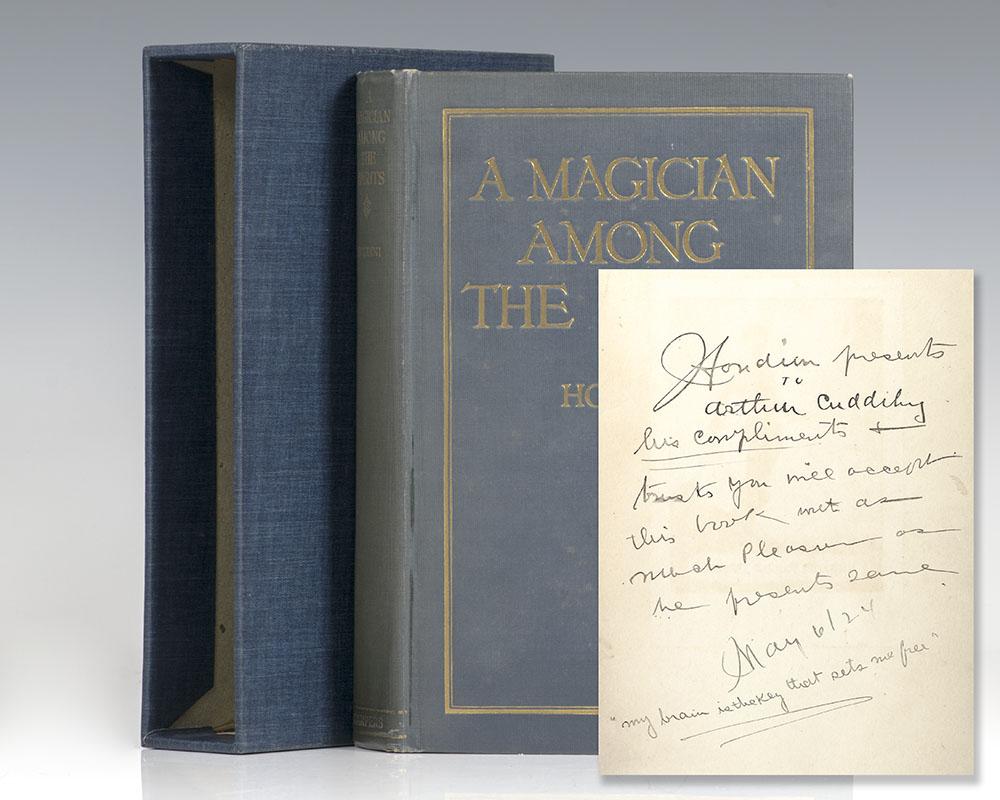 A
MAGICIAN
AMONG
THE
SPIRITS
HOUDINI
HARPERS
A MAGICIAN
AMONG
THE
HO
Houdini presents
TO
Arthur Cuddihy
his compliments &
trusts you will accept
this book with as
much Pleasure as
he presents same.
May 6/24
"my brain is the key that sets me free"